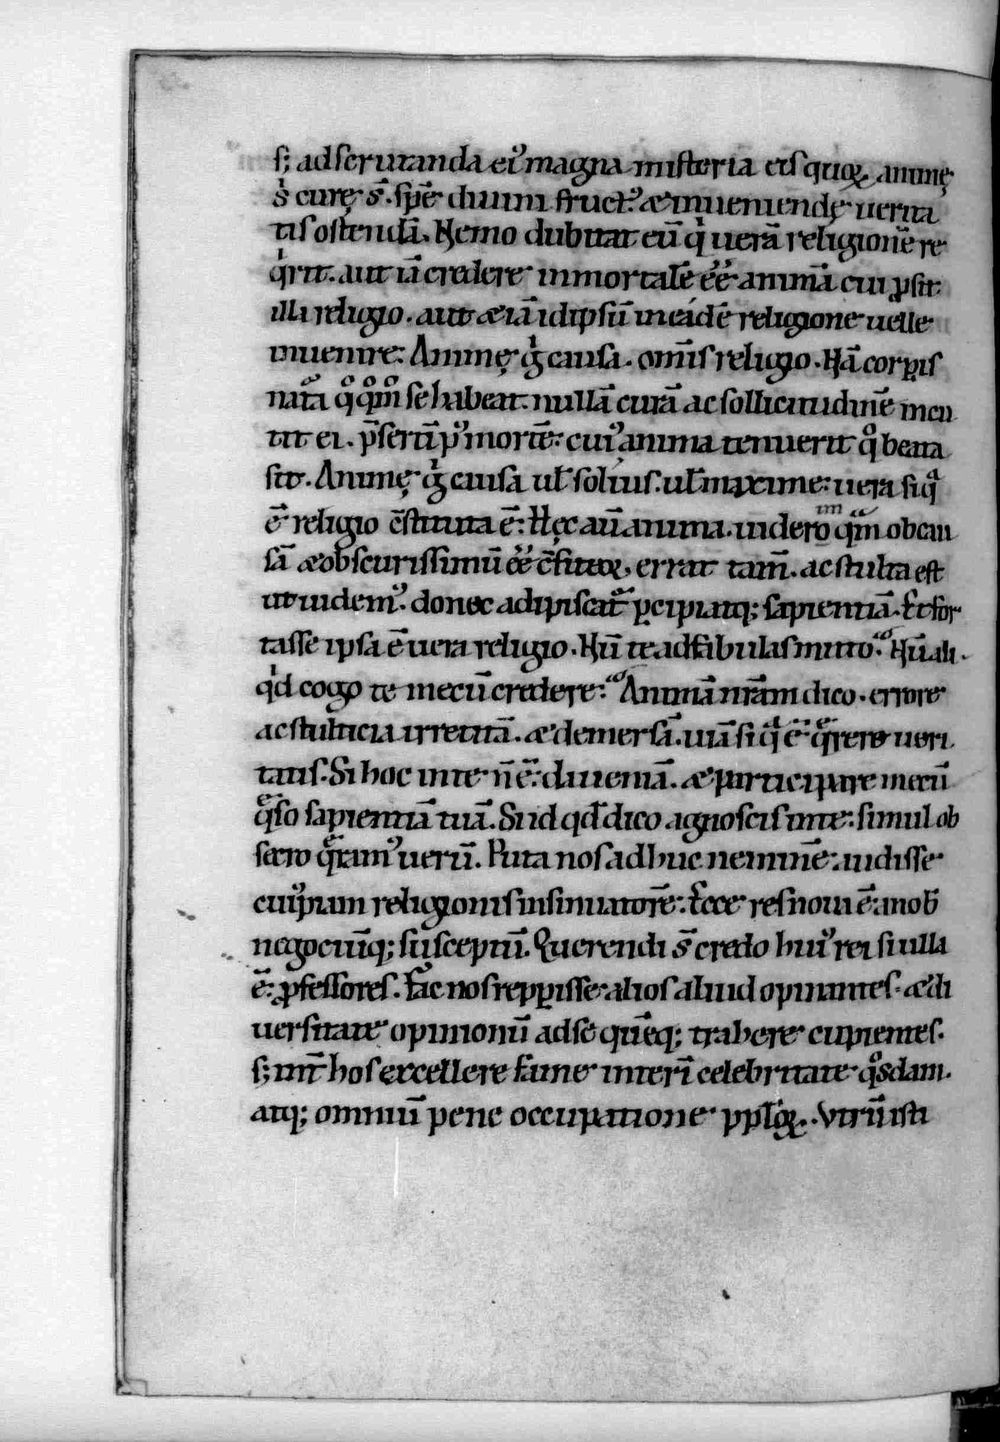 s; ad scrutanda ei᷒ magna misteria eis quoꝝ animę
s̉ curę s̄. spē diuini fruct᷒ & inueniendę uerita
tis ostendā. Nemo dubitat eū q̇ uerā religionē re
q̇rit. aut iā credere inmortalē eē animā cui ꝓsit
illa religio. aut & iā idipsū in eádē religione uelle
inuenire. Animę g̉ causa. om̄is religio. Nā corꝑis
natᵃ qͦqͦm se habeat. nullā curā ac sollicitudinē incu
tit ei. p̄sertī p᷒ mortē: cui᷒ anima tenuerit qͦ beata
sit. Animę g̉ causa ul̄ solius. ul̄ maxime: uera siqᵃ
ē religio c̄stituta ē. Hęc aū anima. uideroͥᵐ qm̄ ob cau
sā & obscurissimū eē c̄fiteoꝝ, errat tam̄. ac stulta est
ut uidem᷒. donec adipiscat᷒ ꝑcipiatq; sapientiā. & for
tasse ipsa ē uera religio. Nū te ad fabulas mitto? Nū ali
q̇d cogo te mecū credere? Animā nr̄am dico. errore
ac stulticia irretitā. & demersā. uiā siqᵃ ē. q̄rere ueri
tatis. Si hoc in te n̄ ē. da ueniā. & participare mecū
q̄so sapientiā tuā. Sı id qd̄ dico agnoscis in te: simul ob
secro q̄ram᷒ uerū. Puta nos adhuc neminē audisse
cui᷒piam religionis insinuatorē. Ecce res noua ē a nob̄
negociūq; susceptū. Querendi s̄ credo hui᷒ rei si ulla
ē. ꝓfessores. Fac nos repꝑisse alios aliud opinantes. & di
uersitate opinionū ad se quēq; trahere cupientes.
s; int̄ hos excellere fame interī celebritate qͦsdam.
atq; omniū pene occupatione ppl̄oꝝ. Vtrū isti